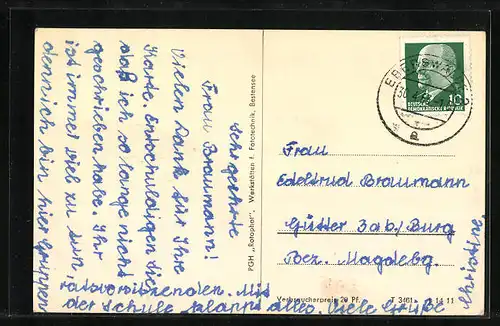 Sehr geehrte
Frau Braumann!
Vielen Dank für Ihre
Karte. Entschuldigen Sie,
daß ich so lange nicht
geschrieben habe. Ihr
ist immer viel zu tun,
dennich bin hier Gruppen
ratsvorsitzenden. Mit
der Schule klappt alles. Viele Grüße
Christine.
PGH „Rotophot", Werkstätten f. Fototechnik, Bestensee
EBERSW
DEUTSCHE
DEMOKRATISCHE REPUBLIK
10
a
Frau
Edeltrud Braumann
Güsser 3ab/Burg
Bez. Magdebg.
Verbraucherpreis 20 Pf.
T 3461
14 11